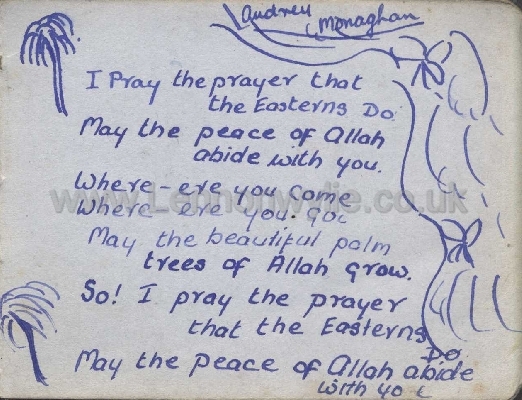 Audrey Monaghan
I Pray the prayer that
the Easterns Do.
May the peace of Allah
abide with you.
Where-ere you Come
Where ere you. Go
May the beautiful palm
trees of Allah grow.
So! I pray the prayer
that the Easterns
Do
May the peace of Allah abide
with yo